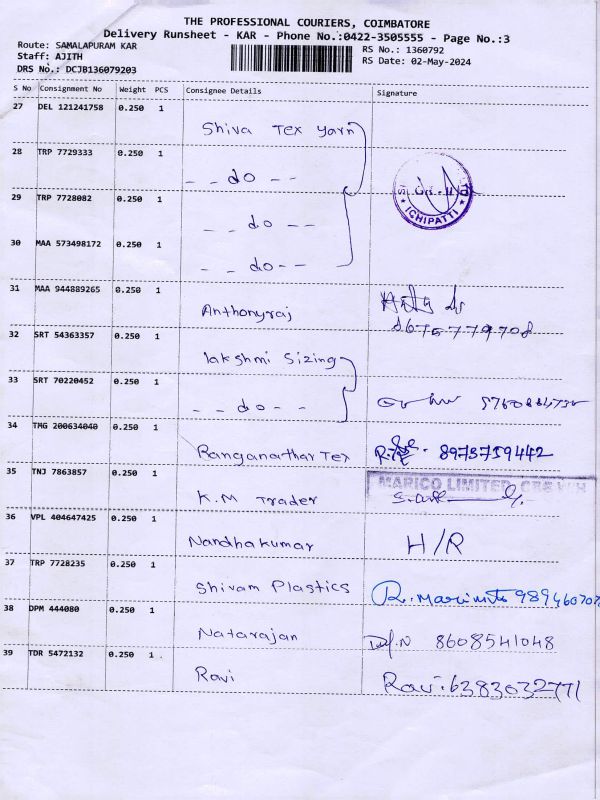 THE PROFESSIONAL COURIERS, COIMBATORE
Delivery Runsheet - KAR - Phone No.:0422-3505555 - Page No.:3
Route: SAMALAPURAM KAR
RS No.: 1360792
Staff: AJITH
RS Date: 02-May-2024
DRS No.: DCJB136079203
S No Consignment No Weight PCS Consignee Details Signature
27 DEL 121241758 0.250 1
Shiva Tex yarn
28 TRP 7729333 0.250 1
- - do - -
29 TRP 7728082 0.250 1
- - do - -
30 MAA 573498172 0.250 1
- - do - -
ICHIPATTI
31 MAA 944889265 0.250 1
Anthonyraj
32 SRT 54363357 0.250 1
lakshmi Sizing
33 SRT 70220452 0.250 1
- - do - -
34 TMG 200634040 0.250 1
Ranganathar Tex 8973719442
35 TNJ 7863857 0.250 1
MARICO LIMITED
K.M Trader
36 VPL 404647425 0.250 1
Nandhakumar H/R
37 TRP 7728235 0.250 1
Shivam Plastics
38 DPM 444080 0.250 1
Natarajan 8608541048
39 TDR 5472132 0.250 1
Ravi Ravi. 6383032771